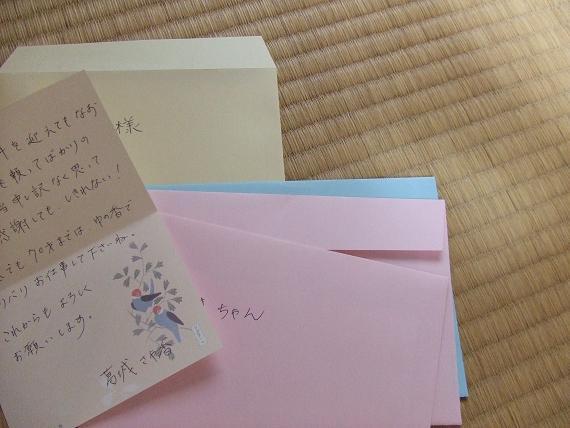 様
を迎えてもなお
頼ってばかりの
当申し訳なく思って
感謝しても、しきれない!
ても70才までは、ゆの香で
バリバリお仕事して下さいね。
これからもよろしく
お願いします。
葛城 さや香
ちゃん